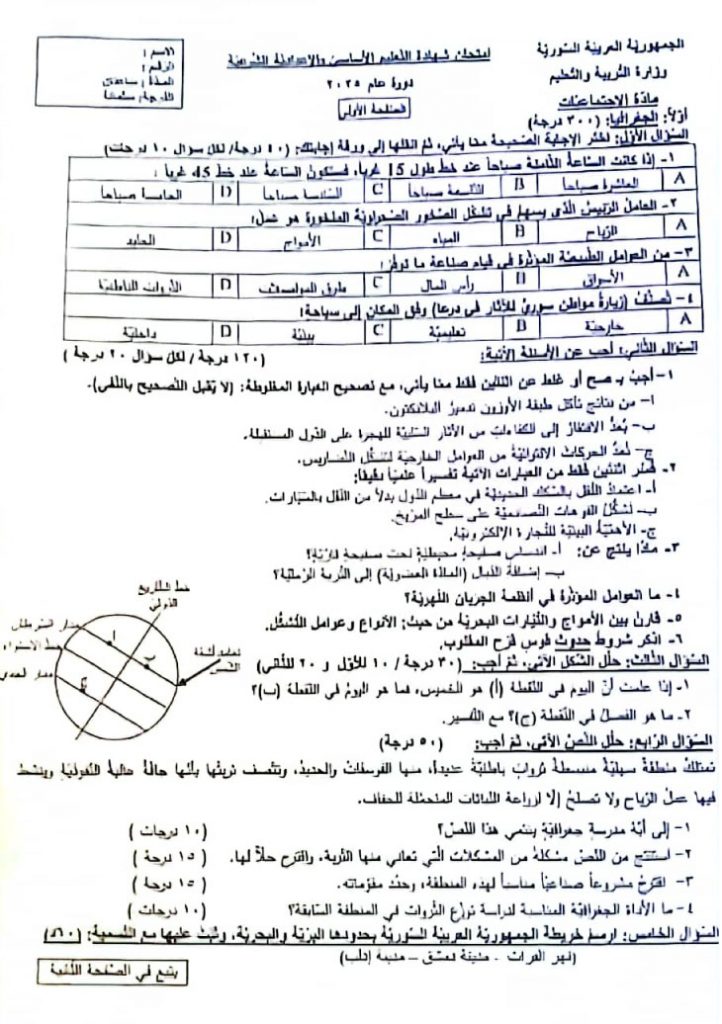 الجمهورية العربية السورية
وزارة التربية والتعليم
مادة الاجتماعيات
امتحان شهادة التعليم الأساسي والإعدادية الشرعية
دورة عام ٢٠٢٥
الصفحة الأولى
الاسم :
الرقم :
المدة : ساعتان
الدرجة :
أولاً: الجغرافيا: (٣٠٠ درجة)
السؤال الأول: اختر الإجابة الصحيحة مما يأتي، ثم انقلها إلى ورقة إجابتك: (٤٠ درجة/ لكل سؤال ١٠ درجات)
١- إذا كانت الساعة الثامنة صباحاً عند خط طول 15 غرباً، فستكون الساعة عند خط 45 غرباً :
A العاشرة صباحاً B التاسعة صباحاً C السادسة صباحاً D الخامسة صباحاً
٢- العامل الرئيس الذي يسهم في تشكل الصخور الصحراوية المنخورة هو عمل:
A الرياح B المياه C الأمواج D الجليد
٣- من العوامل الطبيعية المؤثرة في قيام صناعة ما توفر:
A الأسواق B رأس المال C طرق المواصلات D الثروات الباطنية
٤- تصنّف (زيارة مواطن سوري للآثار في درعا) وفق المكان إلى سياحة:
A خارجية B تعليمية C بيئية D داخلية
السؤال الثاني: أجب عن الأسئلة الآتية: (١٢٠ درجة / لكل سؤال ٢٠ درجة)
١- أجب بـ صح أو غلط عن اثنتين فقط مما يأتي، مع تصحيح العبارة المغلوطة: (لا يُقبل التصحيح بالنفي).
أ- من نتائج تآكل طبقة الأوزون تدمير البلانكتون.
ب- يُعدّ الافتقار إلى الكفاءات من الآثار السلبية للهجرة على الدول المستقبلة.
ج- تُعدّ الحركات الالتوائية من العوامل الخارجية لتشكل التضاريس.
٢- فسّر اثنتين فقط من العبارات الآتية تفسيراً علمياً دقيقاً:
أ- اعتماد النقل بالسكك الحديدية في معظم الدول بدلاً من النقل بالسيارات.
ب- تشكّل الفوهات التصادمية على سطح المريخ.
ج- الأهمية البيئية للتجارة الإلكترونية.
٣- ماذا ينتج عن: أ- اندساس صفيحة محيطية تحت صفيحة قارية؟
ب- إضافة الدبال (المادة العضوية) إلى التربة الرملية؟
٤- ما العوامل المؤثرة في أنظمة الجريان النهرية؟
٥- قارن بين الأمواج والتيارات البحرية من حيث: الأنواع وعوامل التشكّل.
٦- اذكر شروط حدوث قوس قزح المقلوب.
السؤال الثالث: حلل الشكل الآتي، ثم أجب: (٣٠ درجة / ١٠ للأول و ٢٠ للثاني)
١- إذا علمت أنّ اليوم في النقطة (أ) هو الخميس، فما هو اليوم في النقطة (ب)؟
٢- ما هو الفصل في النقطة (ج)؟ مع التفسير.
خط التاريخ
الدولي
مدار السرطان
خط الاستواء
مدار الجدي
تعامد أشعة
الشمس
أ
ب
ج
السؤال الرابع: حلل النص الآتي، ثم أجب: (٥٠ درجة)
تمتلك منطقة سهلية منبسطة ثروات باطنية عديدة، منها الفوسفات والحديد، وتتصف تربتها بأنها جافة عالية النفوذية وينشط
فيها عمل الرياح ولا تصلح إلا لزراعة النباتات المتحملة للجفاف.
١- إلى أية مدرسة جغرافية ينتمي هذا النص؟ (١٠ درجات)
٢- استنتج من النص مشكلة من المشكلات التي تعاني منها التربة، واقترح حلاً لها. (١٥ درجة)
٣- اقترح مشروعاً صناعياً مناسباً لهذه المنطقة، وحدد مقوماته. (١٥ درجة)
٤- ما الأداة الجغرافية المناسبة لدراسة توزع الثروات في المنطقة السابقة؟ (١٠ درجات)
السؤال الخامس: ارسم خريطة الجمهورية العربية السورية بحدودها البرية والبحرية، وثبّت عليها مع التسمية: (٦٠)
(نهر الفرات - مدينة دمشق – مدينة إدلب)
يتبع في الصفحة الثانية